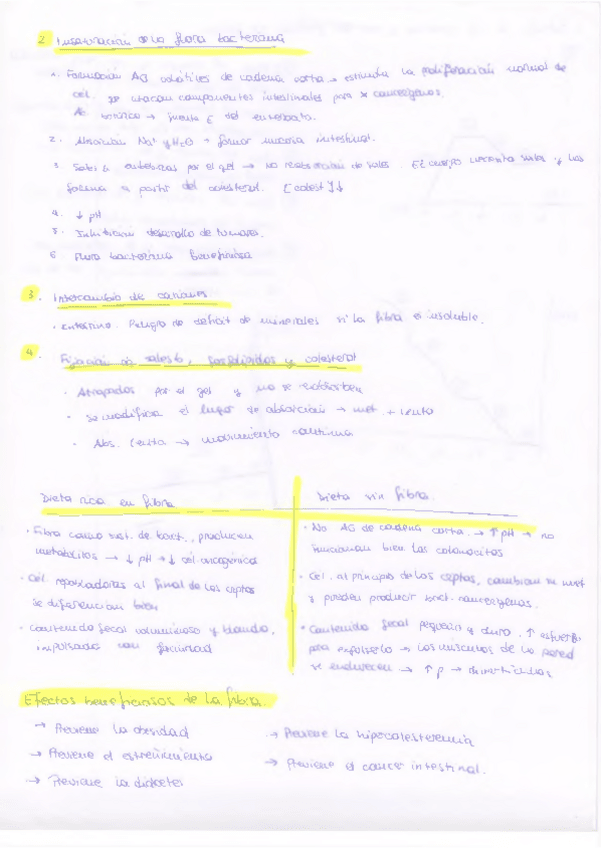 2 Instauración de la flora bacteriana
1. Formación AG volátiles de cadena corta → estimula la proliferación normal de
cél. que atacan componentes intestinales para cancerígenos.
Ac butírico → fuente E del enterocito.
2. Absorción Na⁺ y H₂O → formar mucosa intestinal.
3. Sales b. envueltas por el gel → no reabsorción de sales. El cuerpo necesita sales y las
forma a partir del colesterol. [colest]↓
4. ↓ pH
5. Inhibición desarrollo de tumores.
6 Flora bacteriana beneficiosa
3. Intercambio de cationes
· Intestino. Peligro de déficit de minerales si la fibra es insoluble.
4. Fijación de sales b, fosfolípidos y colesterol
· Atrapados por el gel y no se reabsorben
· Se modifica el lugar de absorción → met. + lento
· Abs. lenta → movimiento continuo
Dieta rica en fibra
· Fibra como sust. de bact., producen
metabolitos → ↓ pH → ↓ cél cancerígena
· Cél. reparadoras al final de las criptas
se diferencian bien
· Contenido fecal voluminoso y blando,
impulsado con facilidad
Dieta sin fibra.
· No AG de cadena corta → ↑ pH → no
funcionan bien los colonocitos
· Cél. al principio de las criptas, cambian su met
y pueden producir bact. cancerígenas.
· Contenido fecal pequeño y duro, ↑ esfuerzo
para expulsarlo → los músculos de la pared
se endurecen → ↑ p → divertículos.
Efectos beneficiosos de la fibra.
→ Previene la obesidad
→ Previene el estreñimiento
→ Previene la diabetes
→ Previene la hipercolesteremia
→ Previene el cáncer intestinal.